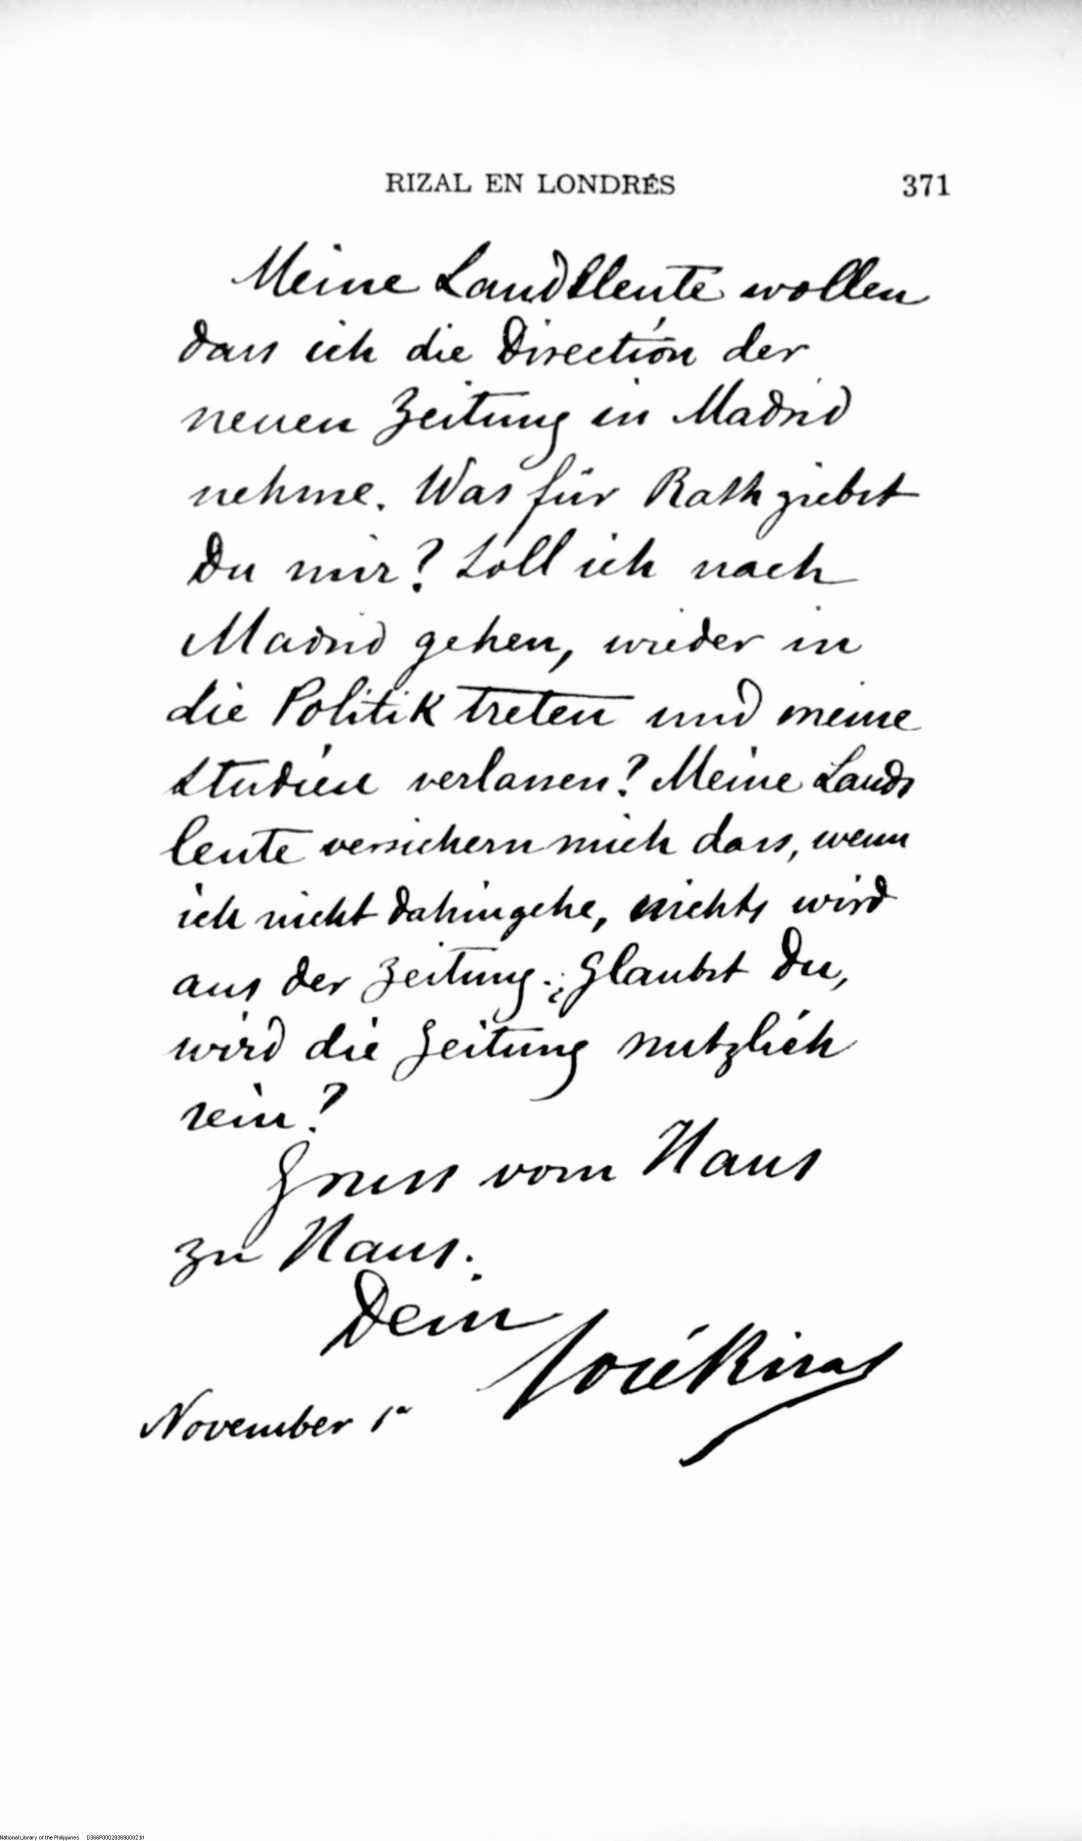 RIZAL EN LONDRÉS 371
Meine Landsleute wollen
dass ich die Direction der
neuen Zeitung in Madrid
nehme. Was für Rath giebst
Du mir? Soll ich nach
Madrid gehen, wieder in
die Politik treten und meine
Studien verlassen? Meine Lands
leute versichern mich dass, wenn
ich nicht dahingehe, nichts wird
aus der Zeitung. ¿Glaubst Du,
wird die Zeitung nutzlich
sein?
Gruss vom Haus
zu Haus.
Dein
José Rizal
November 1º
National Library of the Philippines